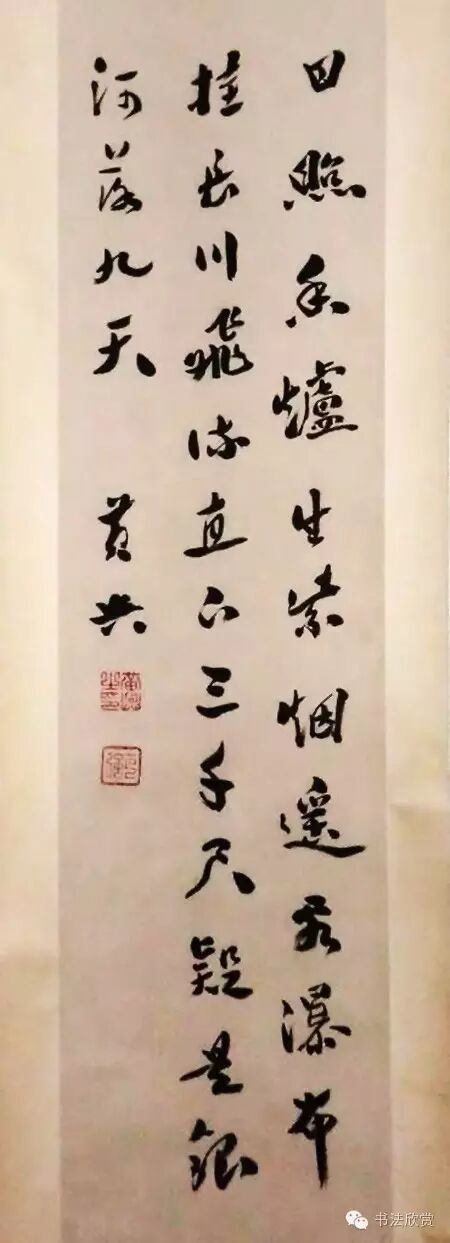 日照香爐生紫烟遥看瀑布
挂長川飛流直下三千尺疑是銀
河落九天
黄興
書法欣赏